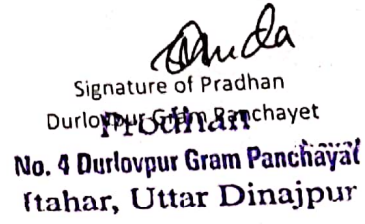 Signature of Pradhan
Durlovpur Gram Panchayet
Prodhan
No. 4 Durlovpur Gram Panchayat
Itahar, Uttar Dinajpur